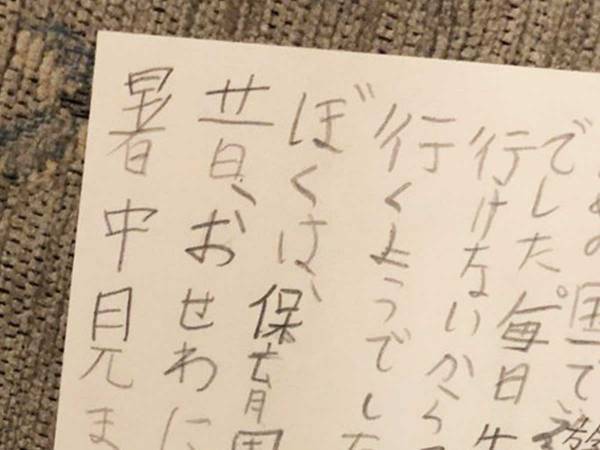 暑中見ま
昔、おせわに
ぼくは、保育園
行くようでした
行けないから
でした。毎日
の園で